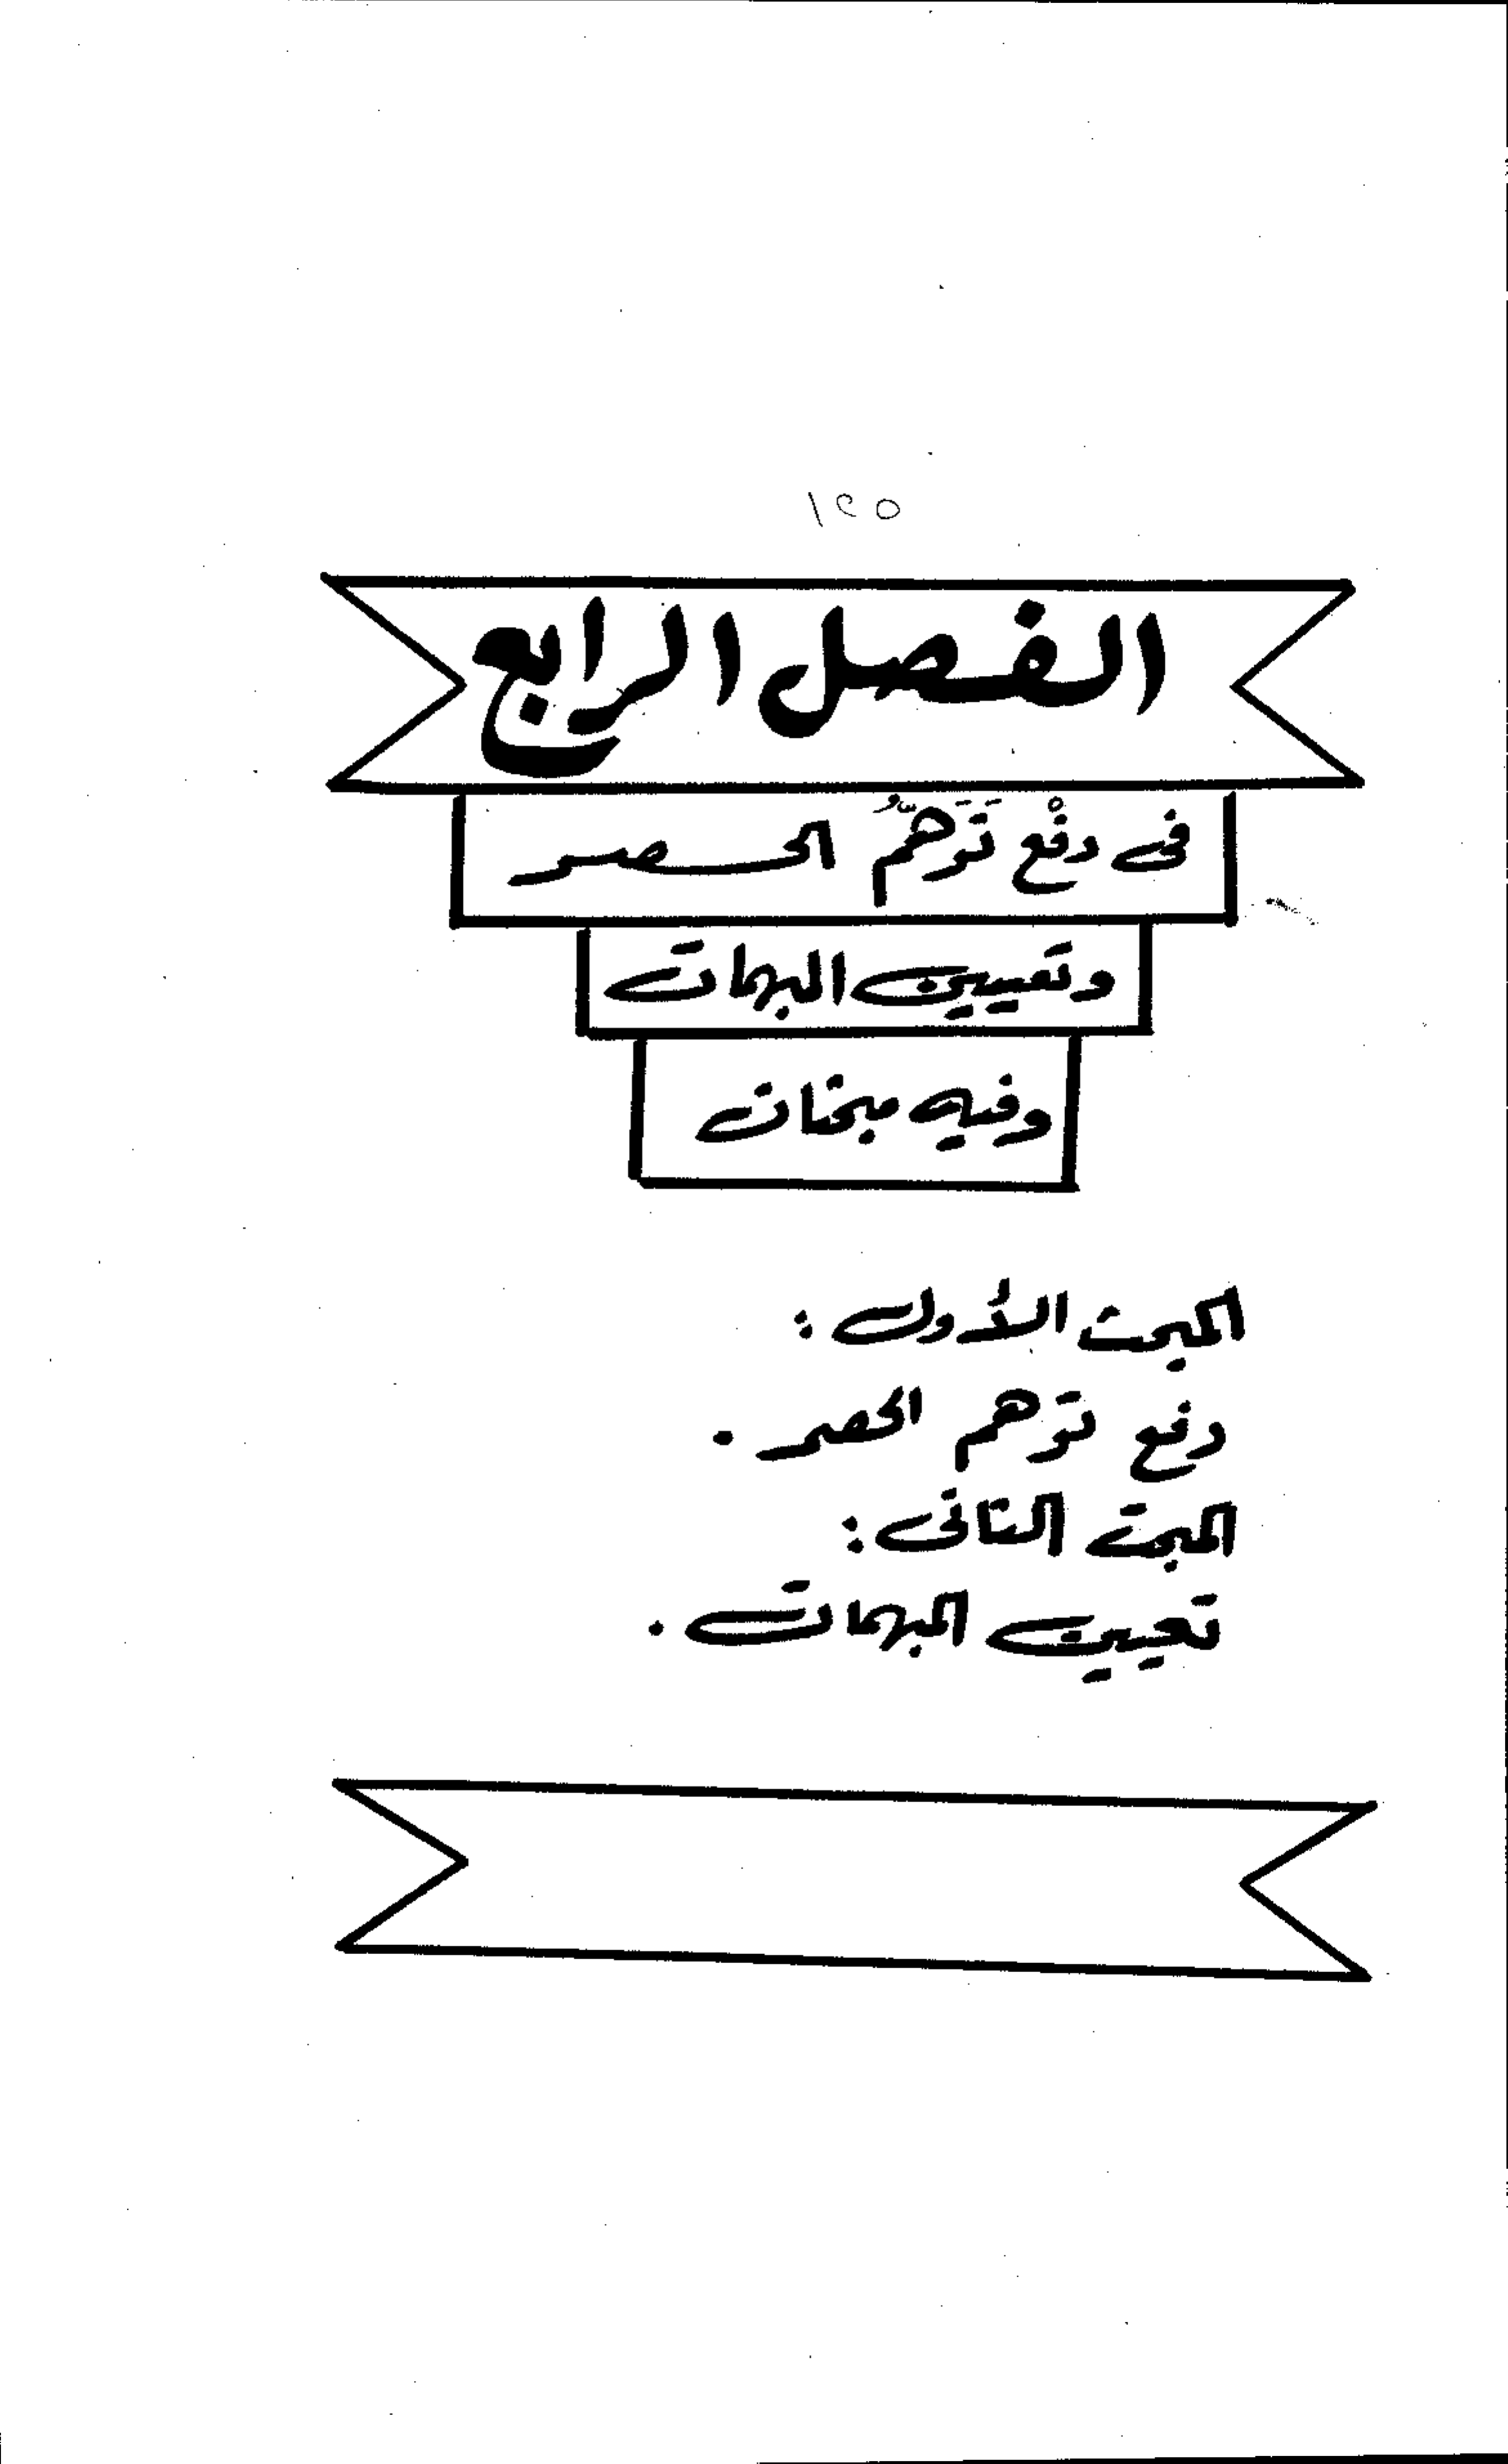 ١٢٥
الفصل الرابع
فى دفْع تَوَهُّم الحصر
وتعيين المبهمات
وفيه مبحثان
المبحث الأول :
دفع توهم الحصر .
المبحث الثانى :
تعيين المبهمات .